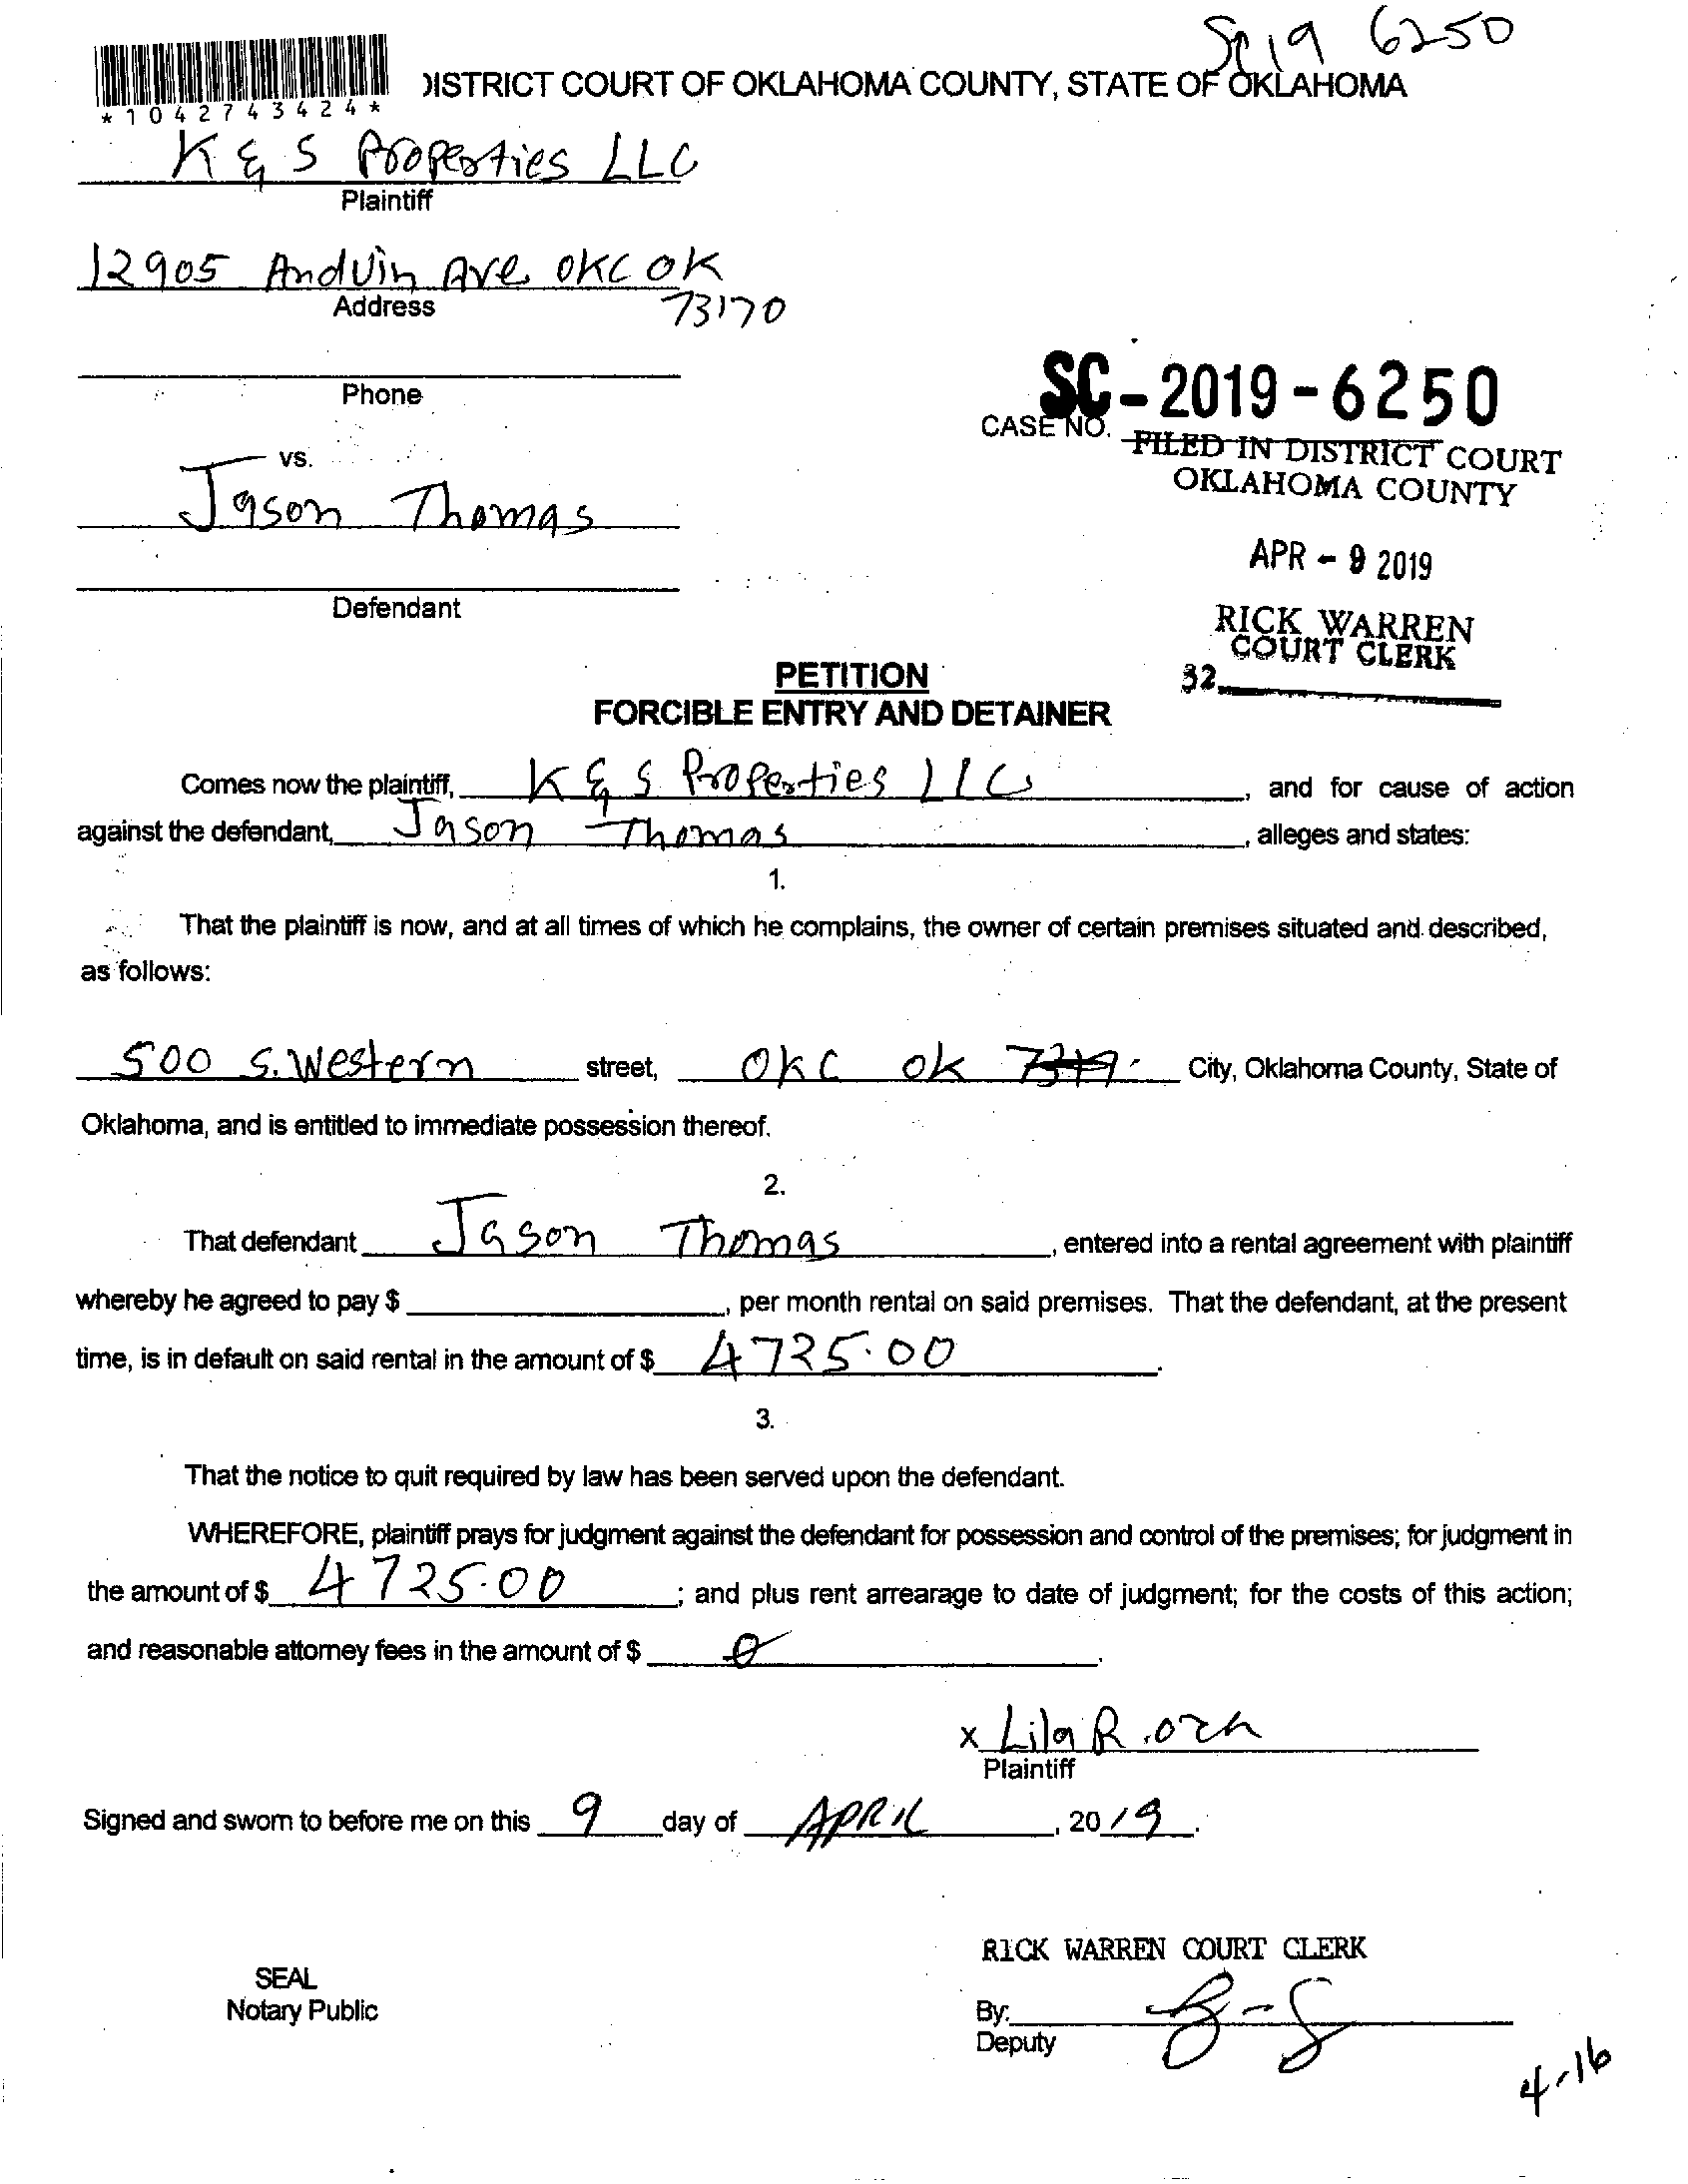 Sc 19 6250
*1042743424*
DISTRICT COURT OF OKLAHOMA COUNTY, STATE OF OKLAHOMA
K & S Properties LLC
Plaintiff
12905 Andvin Ave OKC OK
73170
Address
Phone
SC-2019-6250
CASE NO.
FILED IN DISTRICT COURT
OKLAHOMA COUNTY
vs.
Jason Thomas
APR - 9 2019
Defendant
RICK WARREN
COURT CLERK
32
PETITION
FORCIBLE ENTRY AND DETAINER
Comes now the plaintiff, K & S Properties LLC, and for cause of action
against the defendant, Jason Thomas, alleges and states:
1.
That the plaintiff is now, and at all times of which he complains, the owner of certain premises situated and described,
as follows:
500 S. Western street, OKC OK City, Oklahoma County, State of
Oklahoma, and is entitled to immediate possession thereof.
2.
That defendant Jason Thomas, entered into a rental agreement with plaintiff
whereby he agreed to pay $, per month rental on said premises. That the defendant, at the present
time, is in default on said rental in the amount of $ 4725.00.
3.
That the notice to quit required by law has been served upon the defendant.
WHEREFORE, plaintiff prays for judgment against the defendant for possession and control of the premises; for judgment in
the amount of $ 4725.00; and plus rent arrearage to date of judgment; for the costs of this action;
and reasonable attorney fees in the amount of $ 0.
x Lila R.
Plaintiff
Signed and sworn to before me on this 9 day of APRIL, 2019.
RICK WARREN COURT CLERK
SEAL
Notary Public
By:
Deputy
4-16